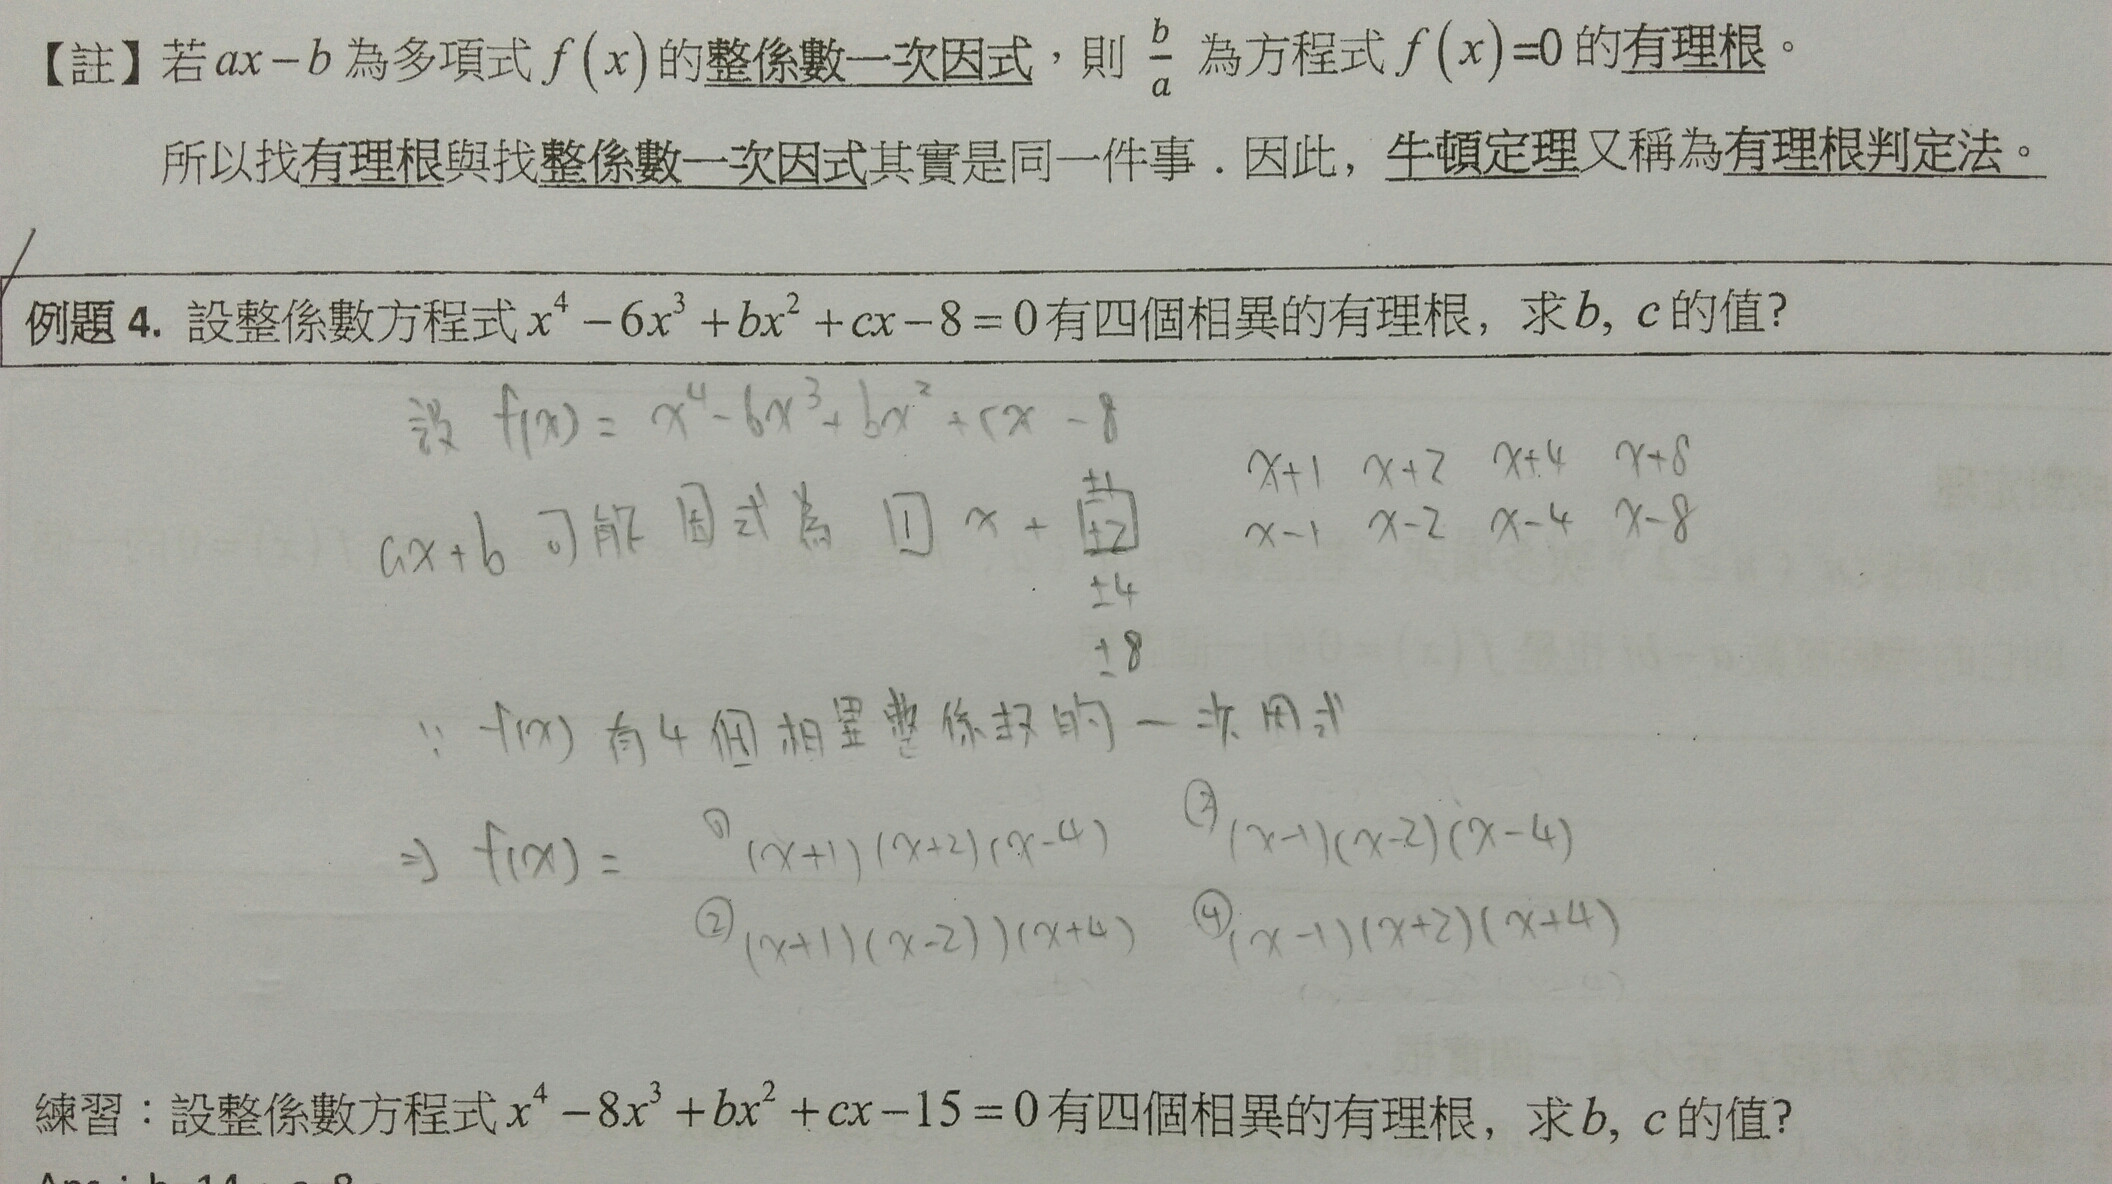 【註】若 ax－b 為多項式 f(x) 的整係數一次因式，則 b/a 為方程式 f(x)=0 的有理根。
所以找有理根與找整係數一次因式其實是同一件事．因此，牛頓定理又稱為有理根判定法。
例題 4. 設整係數方程式 x⁴－6x³＋bx²＋cx－8＝0 有四個相異的有理根，求 b, c 的值?
設 f(x) = x⁴－6x³＋bx²＋cx－8
x+1 x+2 x+4 x+8
ax+b 可能因式為 1 x + ±1 ±2 ±4 ±8
x-1 x-2 x-4 x-8
∵ f(x) 有4個相異整係数的一次因式
⇒ f(x) = ① (x+1)(x+2)(x-4) ③ (x-1)(x-2)(x-4)
② (x+1)(x-2))(x+4) ④ (x-1)(x+2)(x+4)
練習：設整係數方程式 x⁴－8x³＋bx²＋cx－15＝0 有四個相異的有理根，求 b, c 的值?